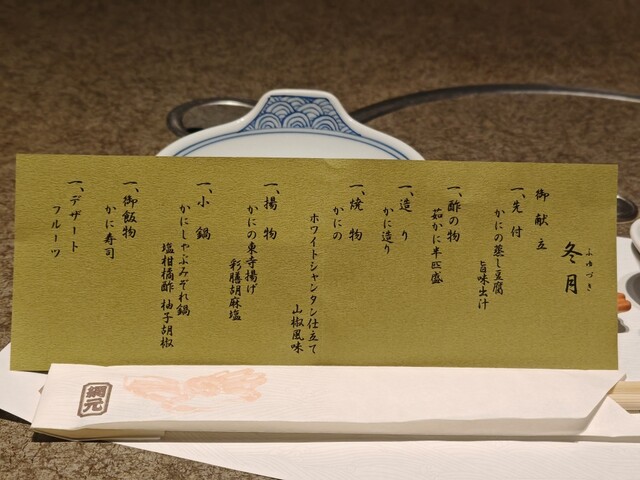 御献立
冬月
ふゆづき
一、先付
かにの蒸し豆腐
旨味出汁
一、酢の物
茹かに半匹盛
一、造り
かに造り
一、焼物
かにの
ホワイトシャンタン仕立て
山椒風味
一、揚物
かにの東寺揚げ
彩膳胡麻塩
一、小鍋
かにしゃぶみぞれ鍋
塩柑橘酢 柚子胡椒
一、御飯物
かに寿司
一、デザート
フルーツ
網元